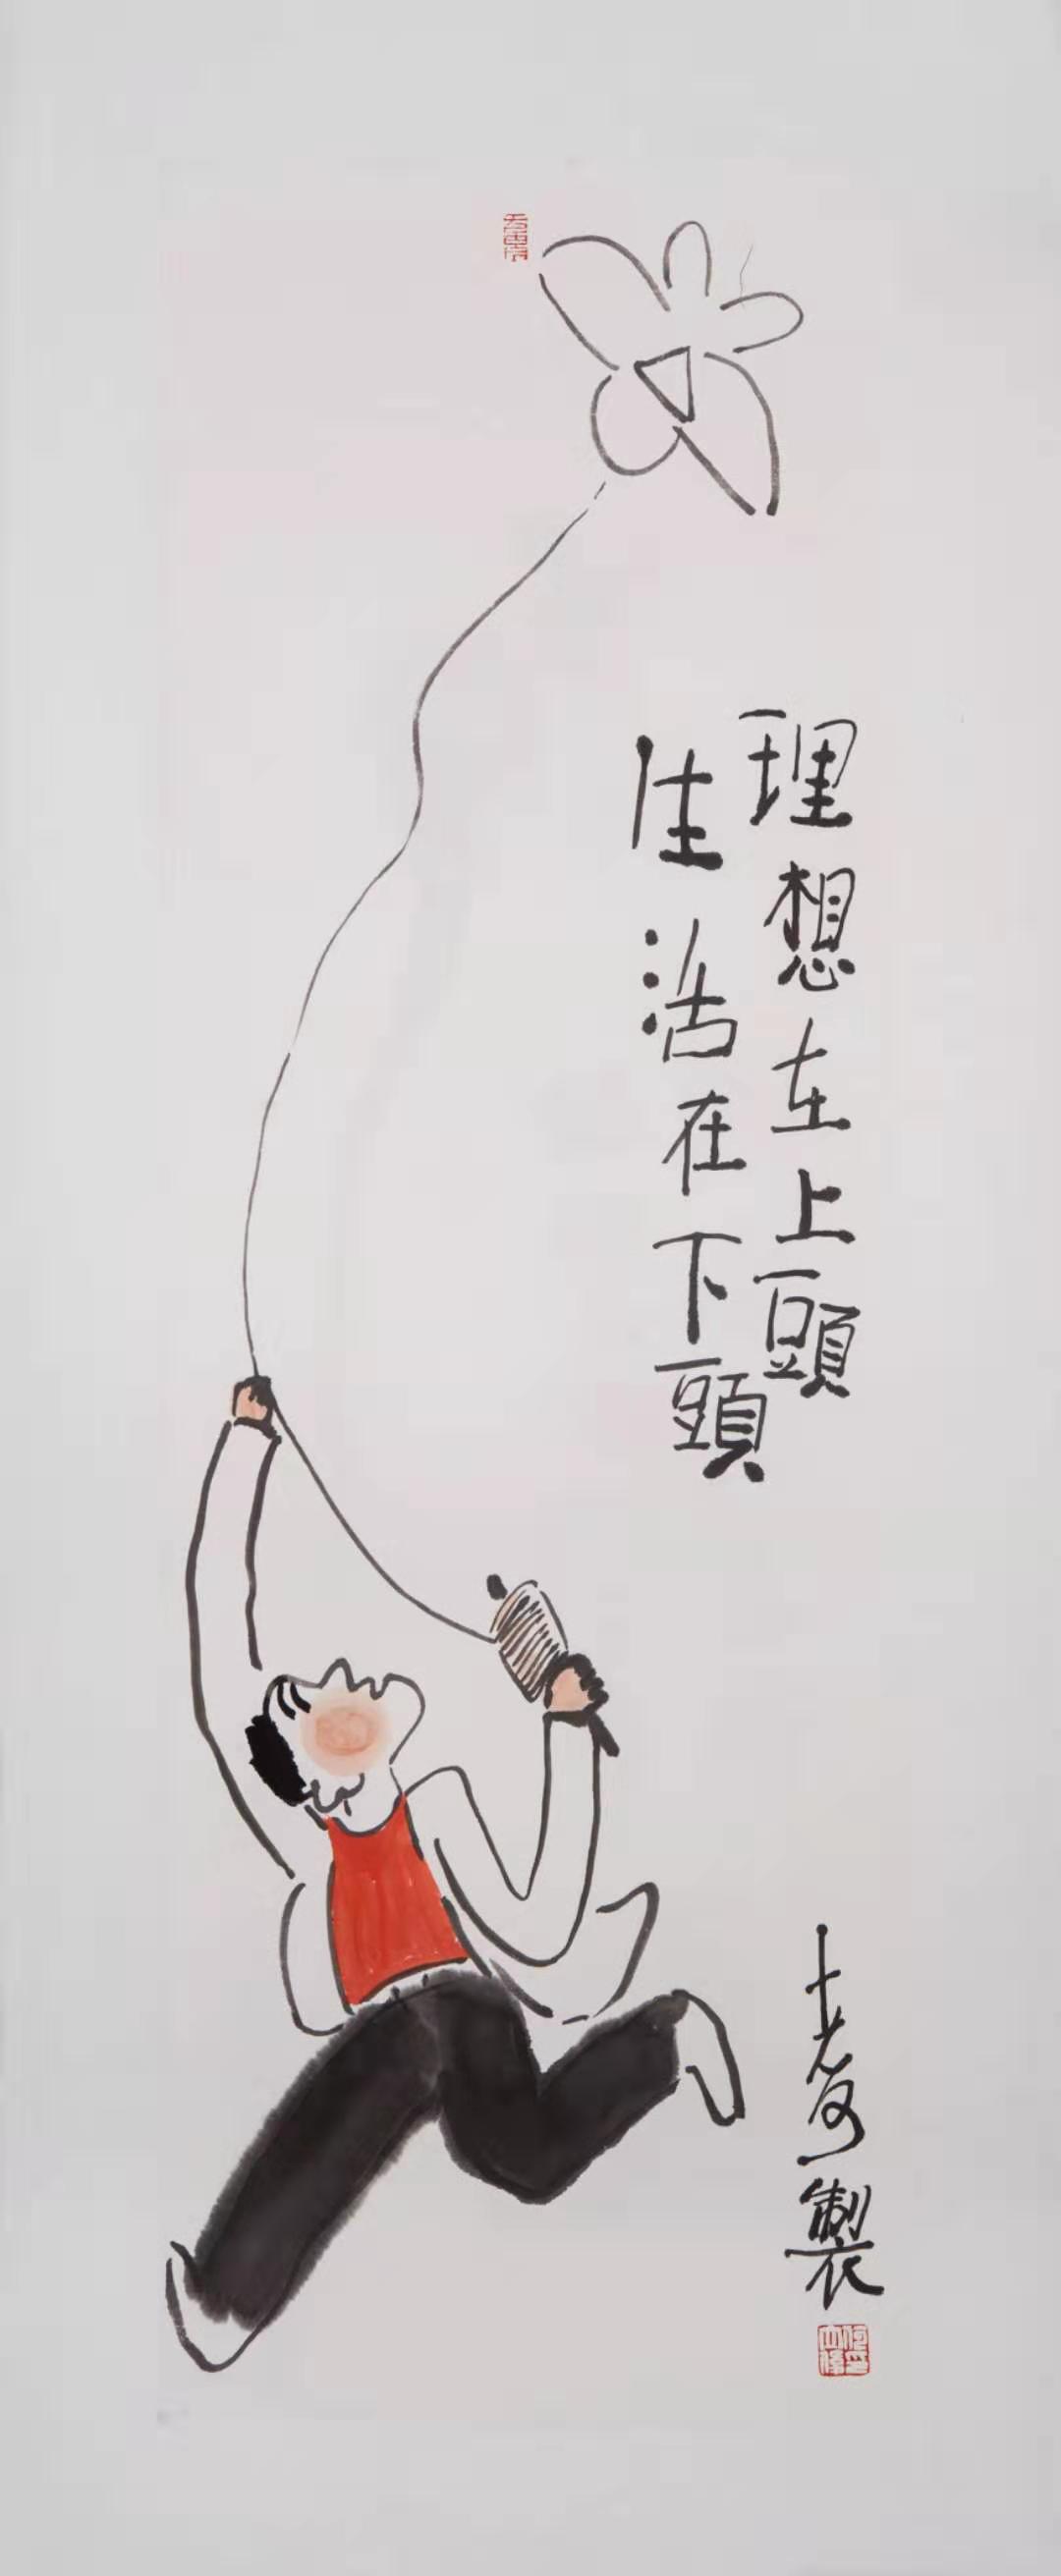 理想在上頭
生活在下頭
製